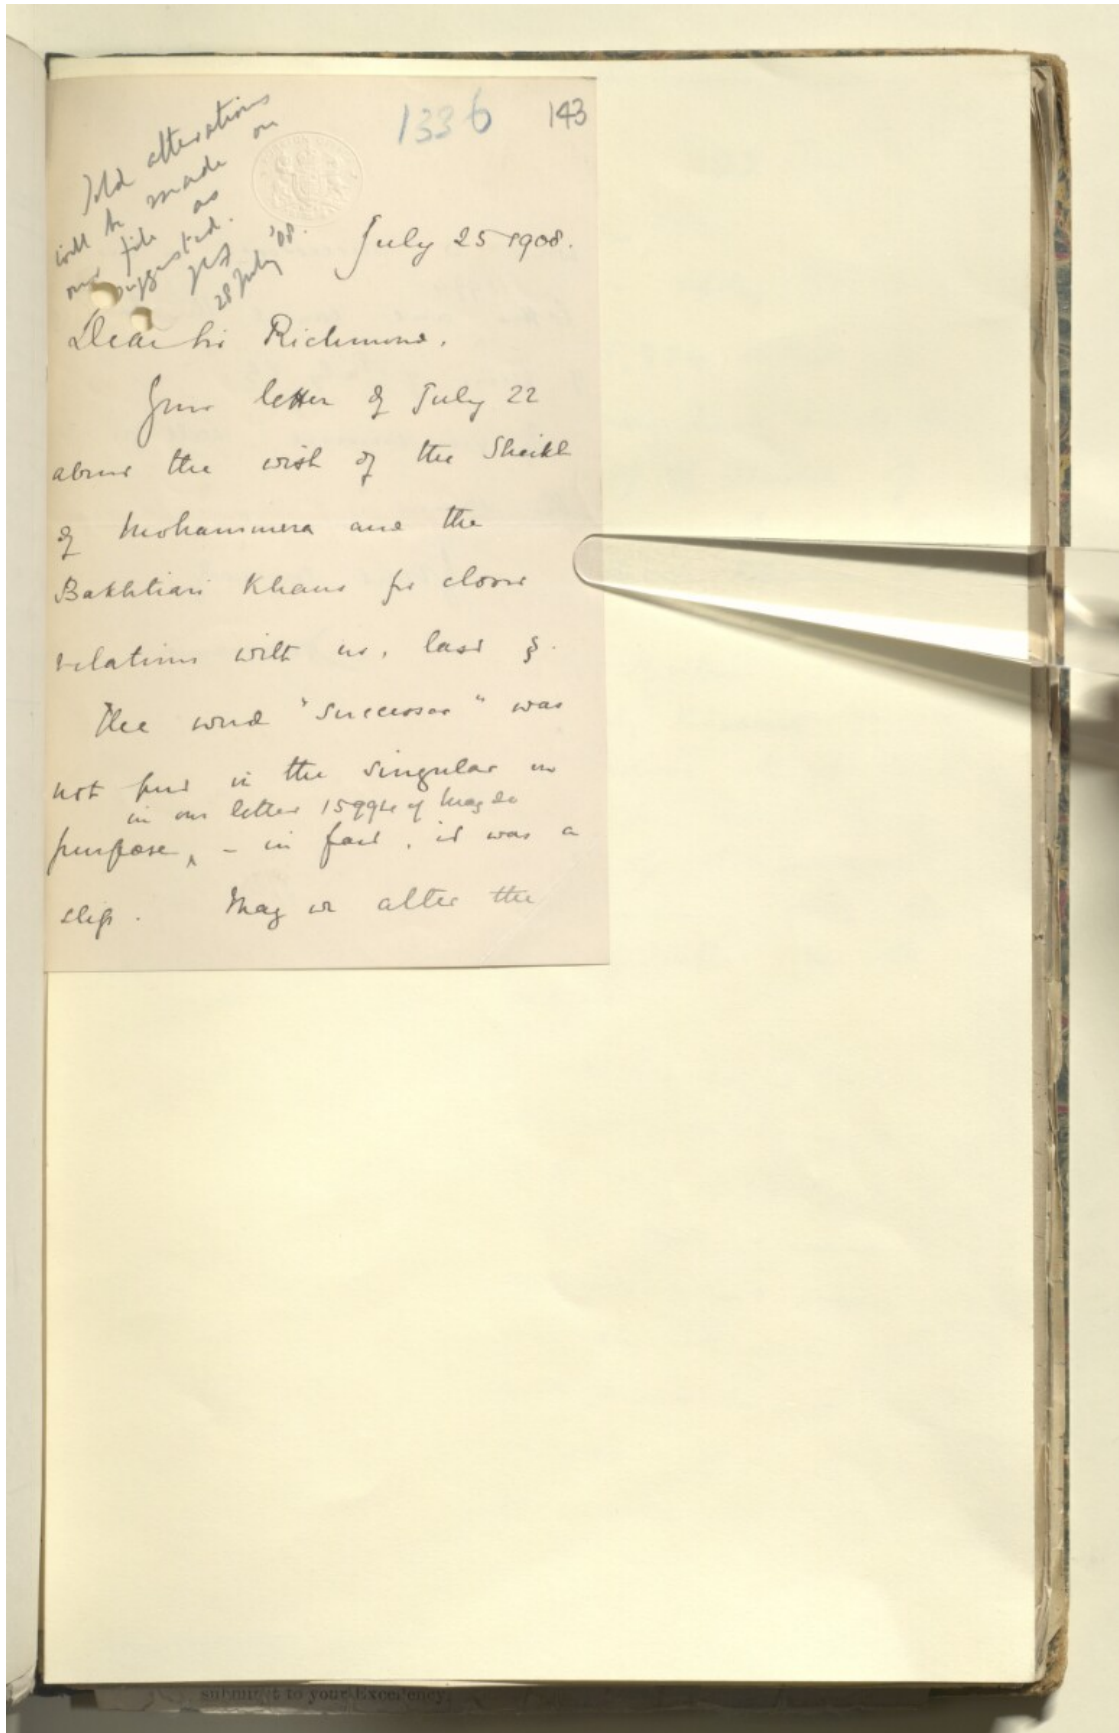 1336
143
Told alterations
will be made on
our file as
suggested.
28 July '08.
July 25 1908.
Dear Sir Richmond,
Your letter of July 22
about the wish of the Sheikh
of Mohammera and the
Bakhtiari Khans for closer
relations with us, last §.
The word "successor" was
not put in the singular on
in our letter 15994 of May 20
purpose, - in fact, it was a
slip. May we alter the
submit to your Excellency.